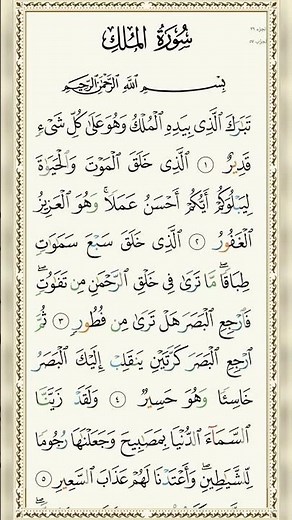 سُورَةُ الْمُلْكِ
بِسْمِ ٱللَّهِ ٱلرَّحْمَٰنِ ٱلرَّحِيمِ
تَبَٰرَكَ ٱلَّذِى بِيَدِهِ ٱلْمُلْكُ وَهُوَ عَلَىٰ كُلِّ شَىْءٍ
قَدِيرٌ ١ ٱلَّذِى خَلَقَ ٱلْمَوْتَ وَٱلْحَيَوٰةَ
لِيَبْلُوَكُمْ أَيُّكُمْ أَحْسَنُ عَمَلًا ۚ وَهُوَ ٱلْعَزِيزُ
ٱلْغَفُورُ ٢ ٱلَّذِى خَلَقَ سَبْعَ سَمَٰوَٰتٍ
طِبَاقًا ۖ مَّا تَرَىٰ فِى خَلْقِ ٱلرَّحْمَٰنِ مِن تَفَٰوُتٍ ۖ
فَٱرْجِعِ ٱلْبَصَرَ هَلْ تَرَىٰ مِن فُطُورٍ ٣ ثُمَّ
ٱرْجِعِ ٱلْبَصَرَ كَرَّتَيْنِ يَنقَلِبْ إِلَيْكَ ٱلْبَصَرُ
خَاسِئًا وَهُوَ حَسِيرٌ ٤ وَلَقَدْ زَيَّنَّا
ٱلسَّمَآءَ ٱلدُّنْيَا بِمَصَٰبِيحَ وَجَعَلْنَٰهَا رُجُومًا
لِّلشَّيَٰطِينِ ۖ وَأَعْتَدْنَا لَهُمْ عَذَابَ ٱلسَّعِيرِ ٥